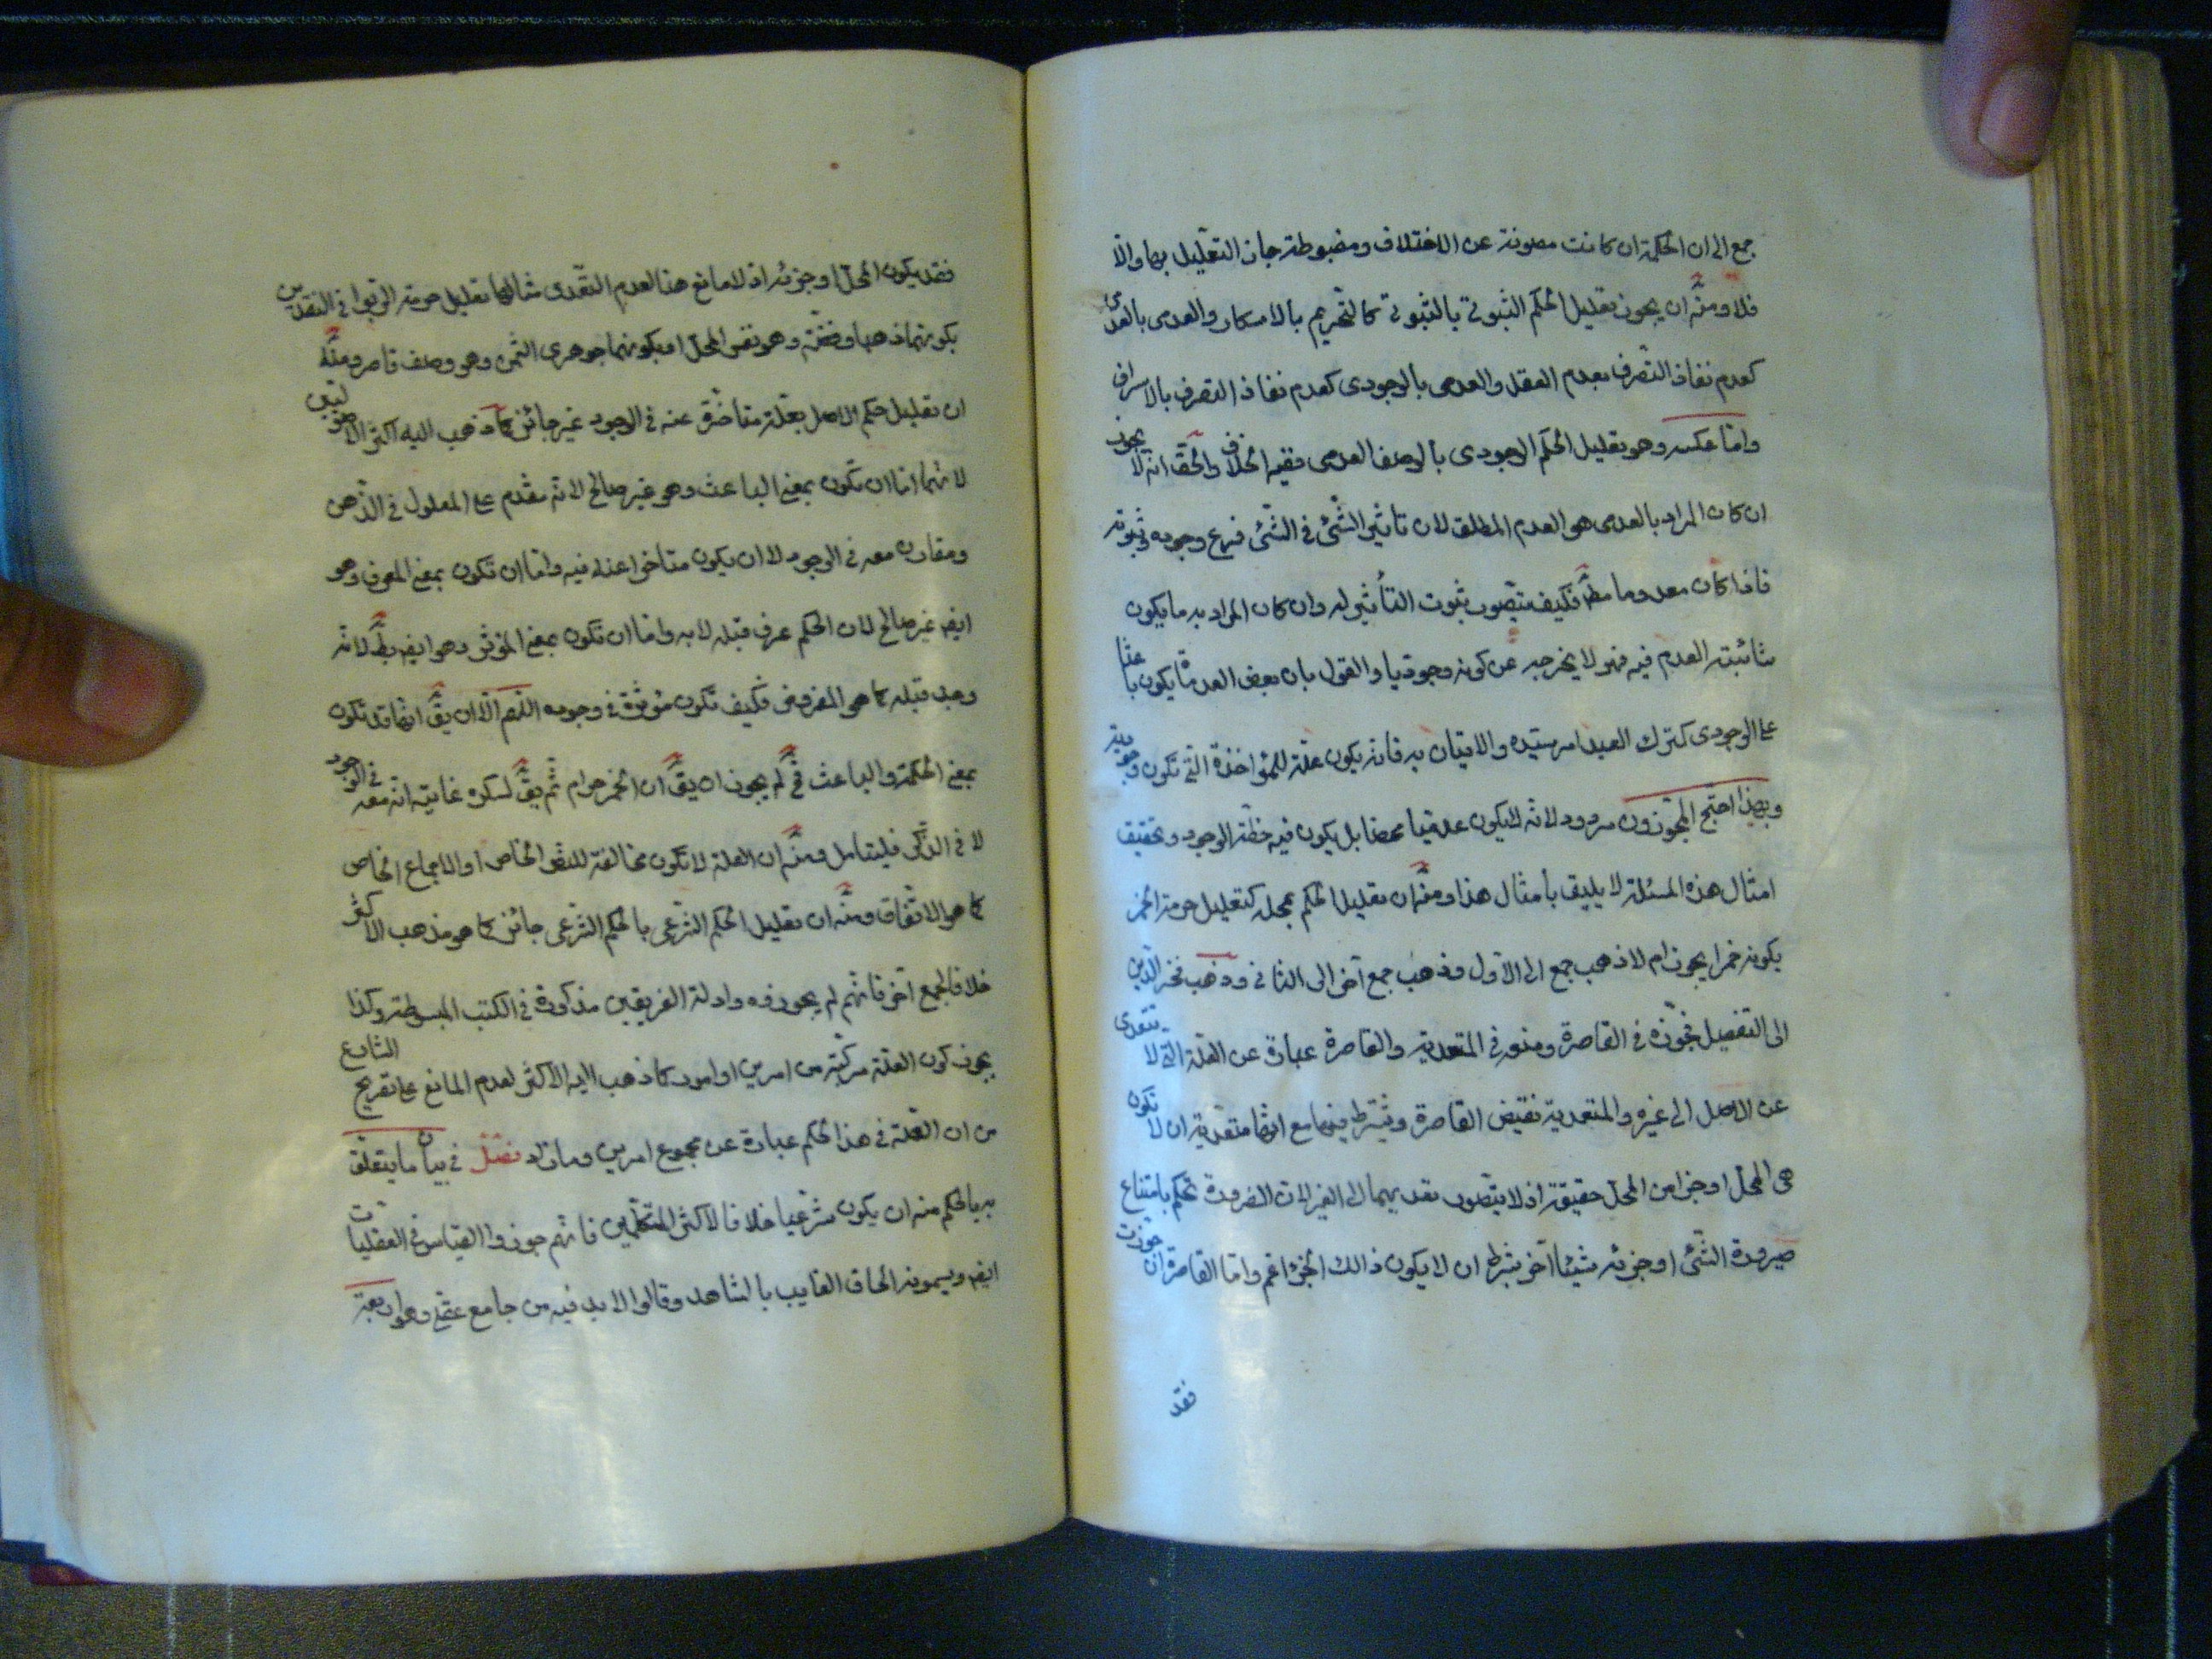 جمع الى ان الحكمة ان كانت مصونة عن الاختلاف ومضبوطة جاز التعليل بها والا
فلا ومنه ان يجوز تعليل الحكم الثبوتى بالثبوتى كالتحريم بالاسكار والعدمى بالعدمى
كعدم نفاذ التصرف بعدم العقل والعدمى بالوجودى كعدم نفاذ التصرف بالاسراف
واما عكسه وهو تعليل الحكم الوجودى بالوصف العدمى ففيه الخلاف والحق انه لا يجوز
ان كان المراد بالعدمى هو العدم المطلق لان تاثير الشئ فى الشئ فرع وجوده وثبوته
فاذا كان معدوما مط فكيف يتصور ثبوت التأثير له وان كان المراد به ما يكون
شائبة العدم فيه فهو لا يخرجه عن كونه وجوديا والقول بان بعض العدم قد يكون باعثا
على الوجودى كترك العبد امر سيده والاتيان به فانه يكون علة للمؤاخذة التى تكون وجودية
وبهذا احتج المجوزون مردود لانه لا يكون عدميا محضا بل يكون فيه حظة الوجود وتحقيق
امثال هذه المسئلة لا يليق بأمثال هذا ومنه ان تعليل الحكم بمحله كتعليل حرمة الخمر
بكونه خمرا يجوز ام لا ذهب جمع الى الاول وذهب جمع آخر الى الثانى وذهب فخر الدين
الى التفصيل فجوزه فى القاصرة ومنعه فى المتعدية والقاصرة عبارة عن العلة التى لا تتعدى
عن الاصل الى غيره والمتعدية نقيض القاصرة ويشترط فيها مع انها متعدية ان لا تكون
هى المحل او جزا من المحل حقيقة اذ لا يتصور تعديهما الى الغير لان الضرورة تحكم بامتناع
صيرورة الشئ او جزئه شيئا آخر بشرط ان لا يكون ذالك الجزء اعم واما القاصرة ان جوزت
فقد
فقد يكون المحل او جزئه اذ لا مانع هنا لعدم التعدى مثالهما تعليل حرمة الربوا فى النقدين
بكونهما ذهبا وفضة وهو نفس المحل او بكونهما جوهرى الثمن وهو وصف قاصر ومنه
ان تعليل حكم الاصل بعلة متأخرة عنه فى الوجود غير جائز كما ذهب اليه اكثر الاصوليين
لانها اما ان تكون بمعنى الباعث وهو غير صالح لانه مقدم على المعلول فى الذهن
ومقارن معه فى الوجود لا ان يكون متاخرا عنه فيه واما ان تكون بمعنى المعرف وهو
ايض غير صالح لان الحكم عرف قبله لا به واما ان تكون بمعنى المؤثر وهو ايض بط لانه
وجد قبله كما هو المفروض فكيف تكون مؤثرة فى وجوده اللهم الا ان يق انها قد تكون
بمعنى الحكمة والباعث فح لم يجوز ان يق ان الخمر حرام ثم يق لسكره غايته انه معه فى الوجود
لا فى الذكر فليتامل ومنه ان العلة لا تكون مخالفة للنص الخاص او الاجماع الخاص
كما هو الاتفاق ومنه ان تعليل الحكم الشرعى بالحكم الشرعى جائز كما هو مذهب الاكثر
خلافا لجمع آخر فانهم لم يجوزوه وادلة الفريقين مذكورة فى الكتب المبسوطة وكذا
يجوز كون العلة مركبة من امرين او امور كما ذهب اليه الاكثر لعدم المانع على تصريح الشارع
من ان العلة فى هذا الحكم عبارة عن مجموع امرين وما زاد فصل فى بيان ما يتعلق
به بالحكم منه ان يكون شرعيا خلافا لاكثر المتكلمين فانهم جوزوا القياس فى العقليات
ايض ويسمونه الحاق الغايب بالشاهد وقالوا لا بد فيه من جامع عقلى وهو اربعة